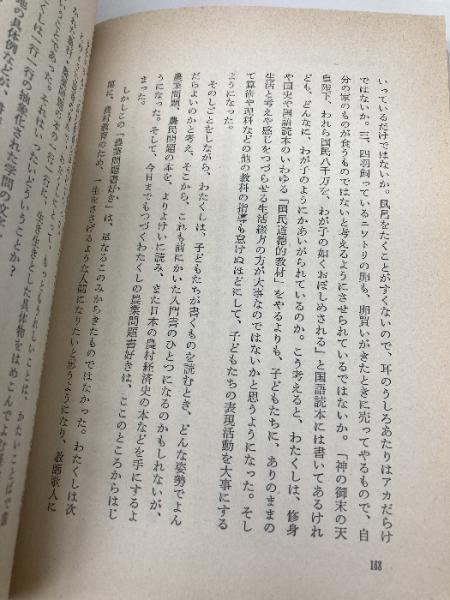 いっているだけではないか。風呂をたくことがすくないので、耳のうしろあたりはアカだらけ
ではないか。三、四羽飼っているニワトリの卵も、卵買いがきたときに売ってやるもので、自
分の家のものが食うものではないと考えるようにさせられているではないか。「神の御末の天
皇陛下、われら国民八千万を、わが子の如くおぼしめされる」と国語読本には書いてあるけれ
ども、どんなに、わが子のようにかあいがられているのか。こう考えると、わたくしは、修身
や国史や国語読本のいわゆる「国民道徳的教材」をやるよりも、子どもたちに、ありのままの
生活と考えや感じをつづらせる生活綴方の方が大事なのではないかと思うようになった。そし
て算術や理科などの他の教科の指導も怠けぬほどにして、子どもたちの表現活動を大事にする
ようになった。
そのしごとをしながら、わたくしは、子どもたちが書くものを読むとき、どんな姿勢でよん
だらよいのかと考え、そこから、これも前にかいた入門書のひとつになるのかもしれないが、
農業問題、農民問題の本を、よりよけいに読み、また日本の農村経済史の本などを手にするよ
うになった。そして、今日までもつづくわたくしの農業問題書好きは、ここのところからはじ
まった。
しかしこの「農業問題書好き」は、単なるこのみからきたものではなかった。わたくしは次
第に、農村教育のため、一生をささげるような人間になりたいと思うようになり、教師歌人に
行一行の抽象化された学問の改
地の具体例などが、
ったいどういうことか?
生き生きとした具体物をはめこんでよ
168